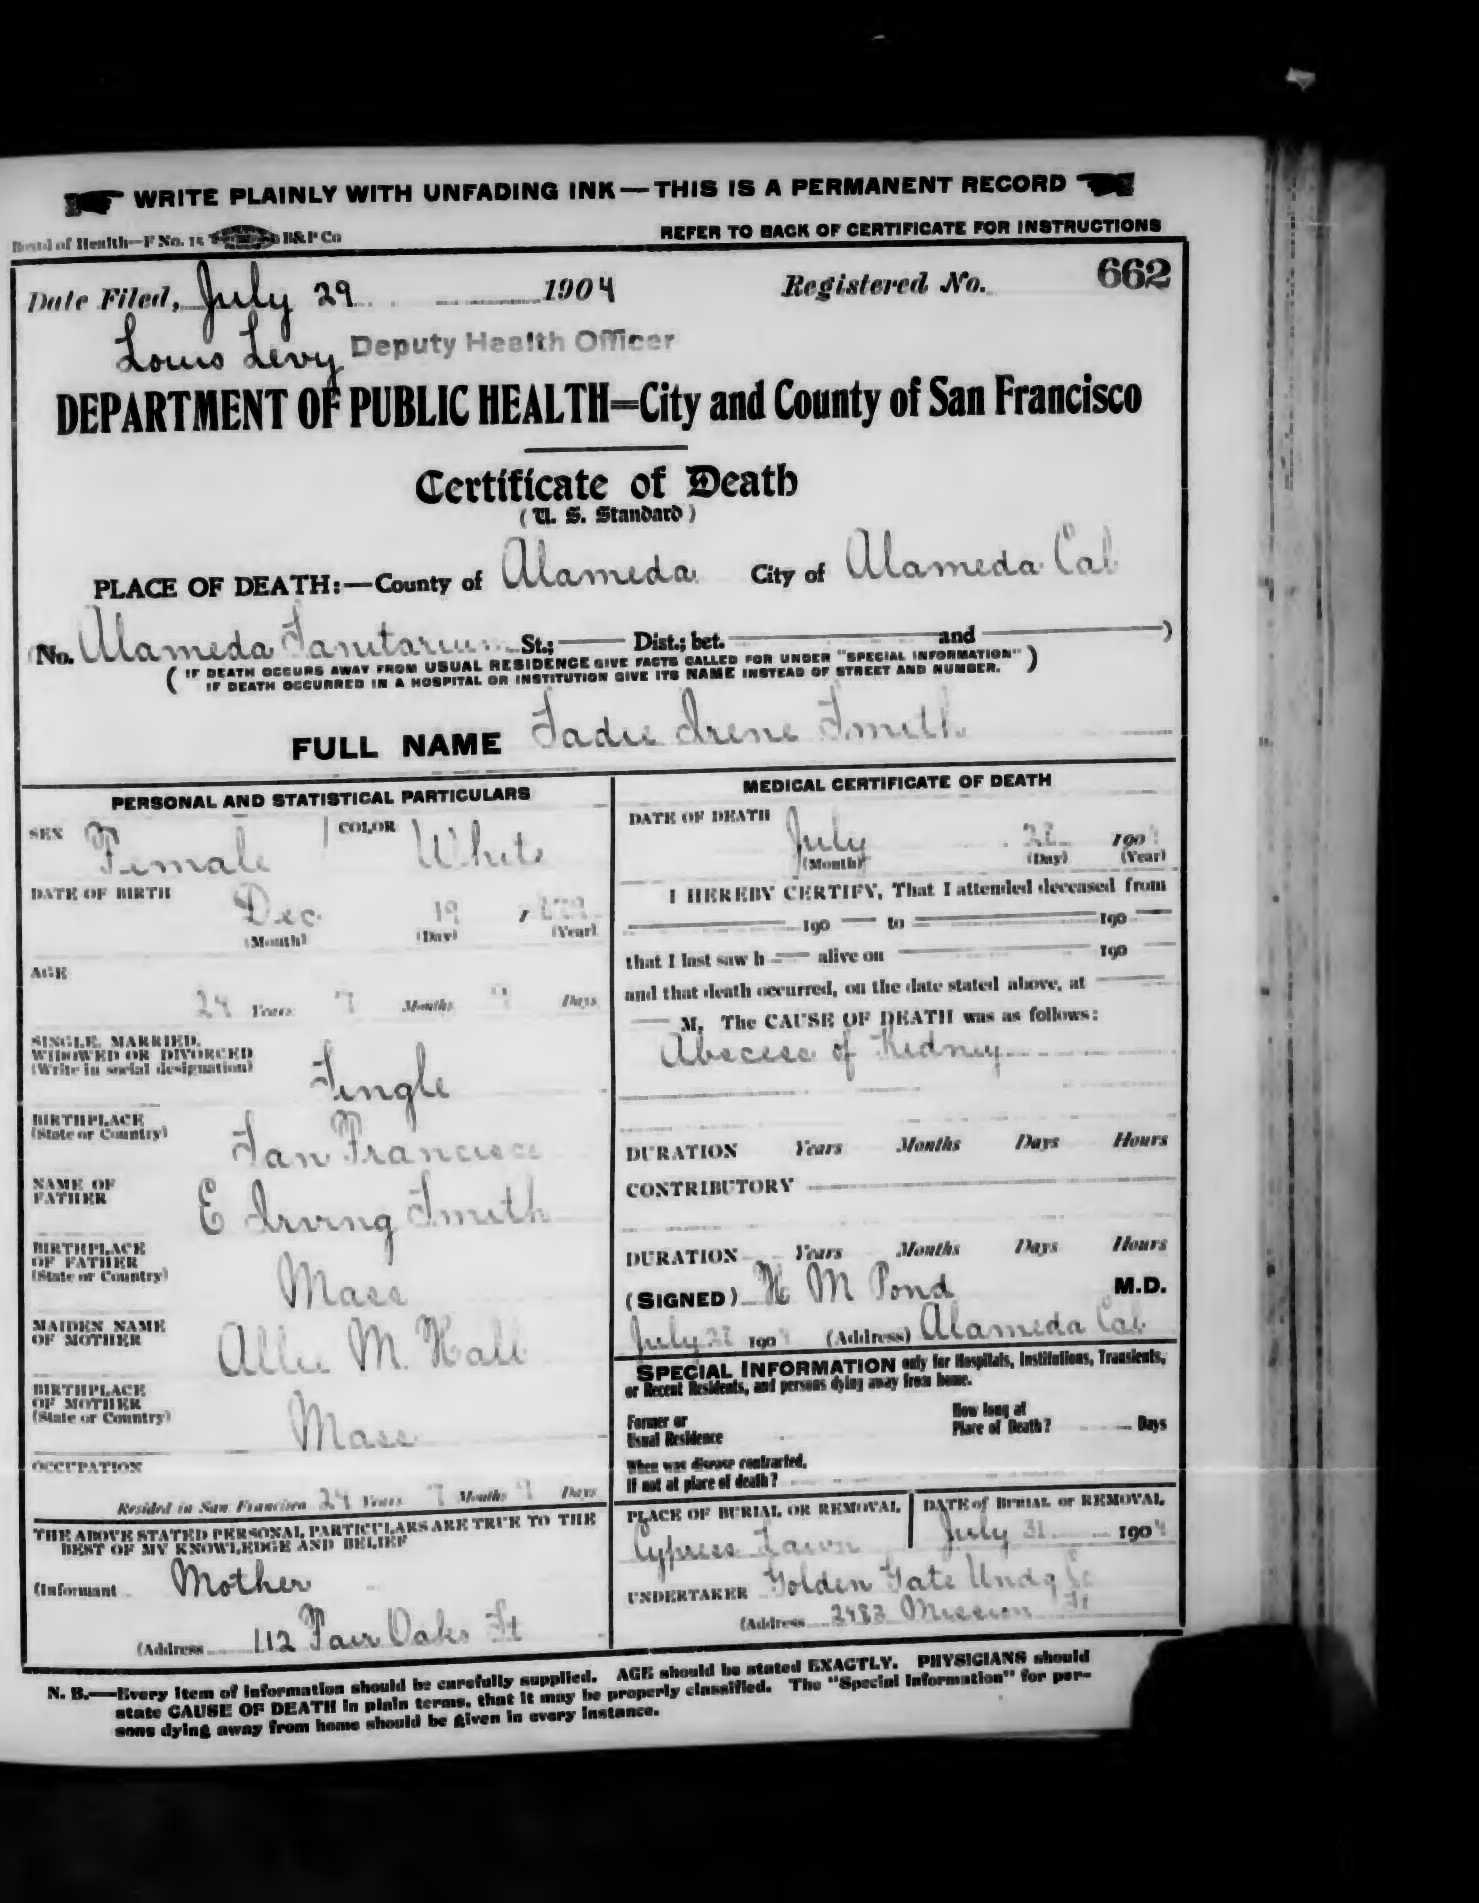 WRITE PLAINLY WITH UNFADING INK—THIS IS A PERMANENT RECORD
Board of Health—F No. 15 B&P Co
REFER TO BACK OF CERTIFICATE FOR INSTRUCTIONS
Date Filed, July 29 1904 Registered No. 662
Louis Levy Deputy Health Officer
DEPARTMENT OF PUBLIC HEALTH=City and County of San Francisco
Certificate of Death
(U. S. Standard)
PLACE OF DEATH:—County of Alameda City of Alameda Cal
(No. Alameda Sanitarium St.; Dist.; bet. and )
( IF DEATH OCCURS AWAY FROM USUAL RESIDENCE GIVE FACTS CALLED FOR UNDER "SPECIAL INFORMATION" )
IF DEATH OCCURRED IN A HOSPITAL OR INSTITUTION GIVE ITS NAME INSTEAD OF STREET AND NUMBER.
FULL NAME Sadie Irene Smith
PERSONAL AND STATISTICAL PARTICULARS
SEX Female COLOR White
DATE OF BIRTH
Dec 19 , 1879
(Month) (Day) (Year)
AGE
24 Years 7 Months 9 Days
SINGLE, MARRIED,
WIDOWED OR DIVORCED
(Write in social designation)
Single
BIRTHPLACE
(State or Country)
San Francisco
NAME OF
FATHER
E Irving Smith
BIRTHPLACE
OF FATHER
(State or Country)
Mass
MAIDEN NAME
OF MOTHER
Allie M. Hall
BIRTHPLACE
OF MOTHER
(State or Country)
Mass
OCCUPATION
Resided in San Francisco 24 Years 7 Months 9 Days
THE ABOVE STATED PERSONAL PARTICULARS ARE TRUE TO THE
BEST OF MY KNOWLEDGE AND BELIEF
(Informant Mother
(Address 112 Fair Oaks St
MEDICAL CERTIFICATE OF DEATH
DATE OF DEATH
July 28 1904
(Month) (Day) (Year)
I HEREBY CERTIFY, That I attended deceased from
190 to 190
that I last saw h alive on 190
and that death occurred, on the date stated above, at
M. The CAUSE OF DEATH was as follows:
Abscess of Kidney
DURATION Years Months Days Hours
CONTRIBUTORY
DURATION Years Months Days Hours
(SIGNED) H M Pond M.D.
July 28 1904 (Address) Alameda Cal
SPECIAL INFORMATION only for Hospitals, Institutions, Transients,
or Recent Residents, and persons dying away from home.
Former or
Usual Residence
How long at
Place of Death? Days
When was disease contracted,
If not at place of death?
PLACE OF BURIAL OR REMOVAL
Cypress Lawn
DATE of BURIAL or REMOVAL
July 31 1904
UNDERTAKER Golden Gate Undg Co
(Address 2483 Mission St
N. B.—Every item of information should be carefully supplied. AGE should be stated EXACTLY. PHYSICIANS should
state CAUSE OF DEATH in plain terms, that it may be properly classified. The "Special Information" for per-
sons dying away from home should be given in every instance.